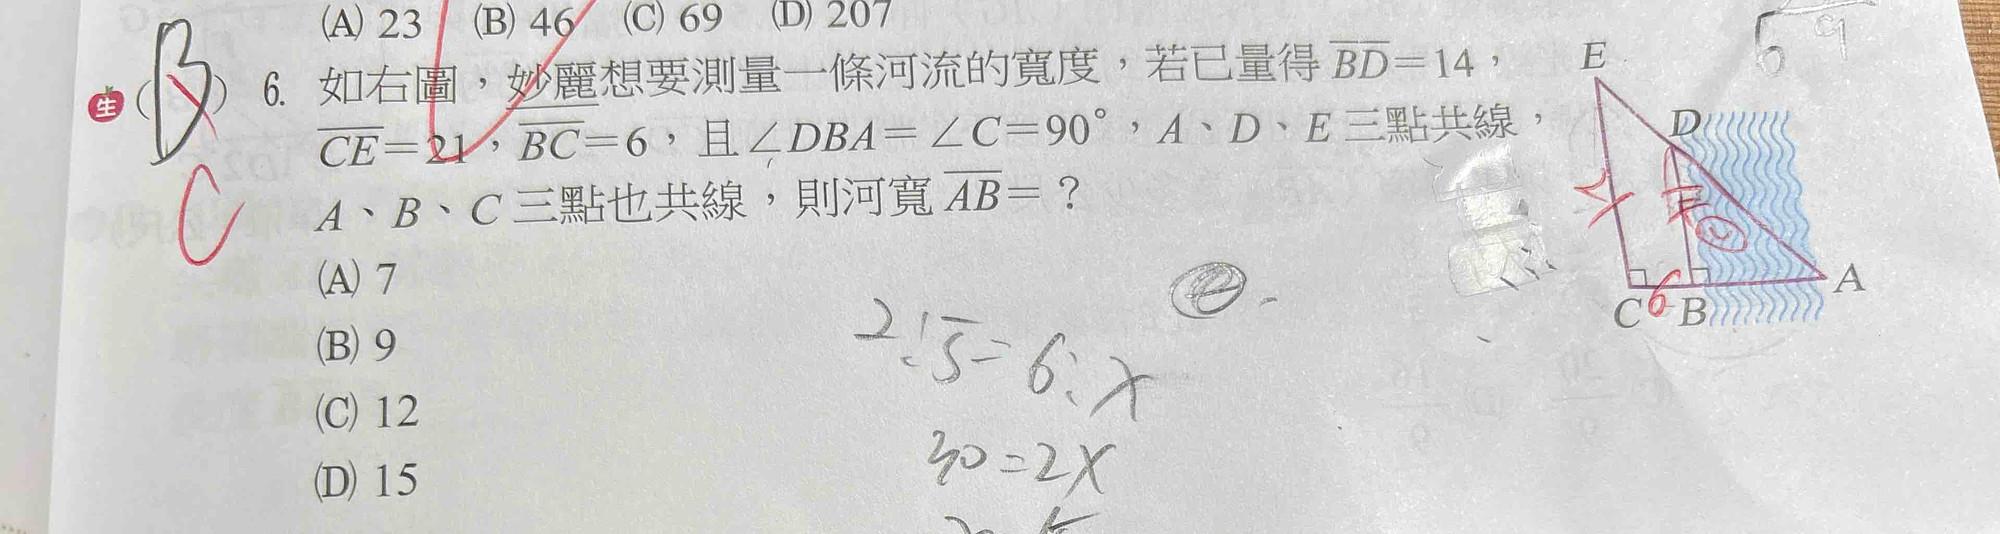 (A) 23 (B) 46 (C) 69 (D) 207
B
生 ( ) 6. 如右圖，妙麗想要測量一條河流的寬度，若已量得 BD=14，
CE=21，BC=6，且∠DBA=∠C=90°，A、D、E 三點共線，
A、B、C 三點也共線，則河寬 AB=？
C
(A) 7
(B) 9
(C) 12
(D) 15
2:5=6:x
30=2x
E
D
C 6 B
A